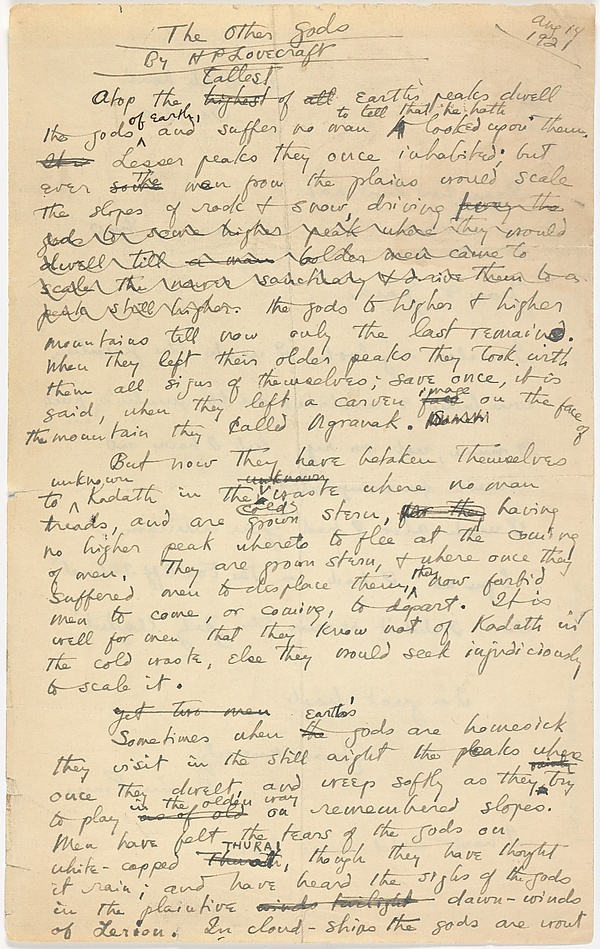 The Other Gods
Aug 14
1921
By H P Lovecraft
Tallest
Atop the highest of all Earth's peaks dwell
of Earth, to tell that he hath
the gods and suffer no man looked upon them.
Lesser peaks they once inhabited; but
ever some the men from the plains would scale
the slopes of rock & snow, driving away the
gods to some higher peak where they would
dwell till a man bolder men came to
scale the newer sanctuary & drive them to a
peak still higher. the gods to higher & higher
mountains till now only the last remains.
When they left their older peaks they took with
them all signs of themselves; save once, it is
image
said, when they left a carven face on the face of
the mountain they called Ngranek.
But now they have betaken themselves
unknown unknown
to Kadath in the cold waste where no man
treads, and are grown stern, for they having
no higher peak whereto to flee at the coming
of men. They are grown stern, & where once they
suffered men to displace them, they now forbid
men to come, or coming, to depart. It is
well for men that they know not of Kadath in
the cold waste, else they would seek injudiciously
to scale it.
yet two men
earth's
Sometimes when the gods are homesick
they visit in the still night the peaks where
once they dwelt, and weep softly as they try
in the olden way
to play as of old on remembered slopes.
Men have felt the tears of the gods on
THURAI
white-capped Thurai, though they have thought
it rain; and have heard the sighs of the gods
in the plaintive winds twilight dawn-winds
of Lerion. In cloud-ships the gods are wont